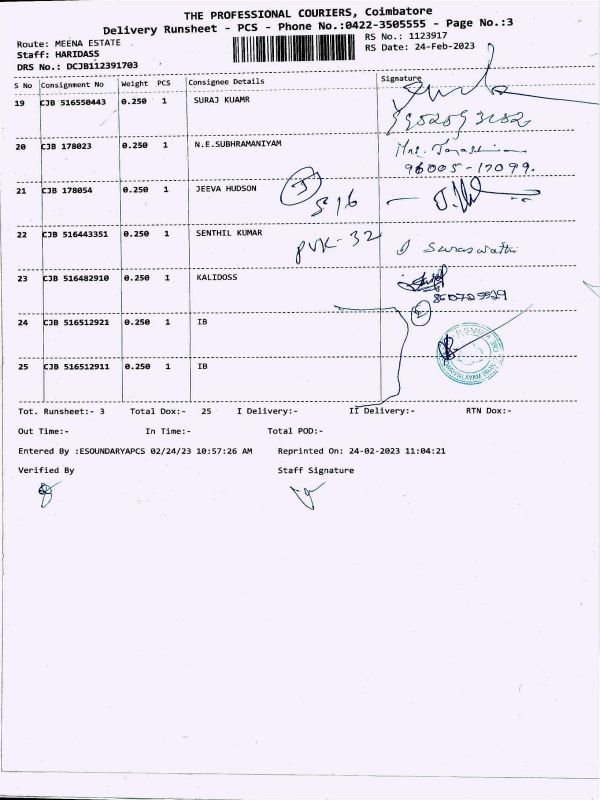 THE PROFESSIONAL COURIERS, Coimbatore
Delivery Runsheet - PCS - Phone No.:0422-3505555 - Page No.:3
Route: MEENA ESTATE
RS No.: 1123917
Staff: HARIDASS
RS Date: 24-Feb-2023
DRS No.: DCJB112391703
S No Consignment No Weight PCS Consignee Details Signature
19 CJB 516550443 0.250 1 SURAJ KUAMR
20 CJB 178023 0.250 1 N.E.SUBHRAMANIYAM
96005-17099.
21 CJB 178054 0.250 1 JEEVA HUDSON
516
22 CJB 516443351 0.250 1 SENTHIL KUMAR PVK-32 Saraswathi
23 CJB 516482910 0.250 1 KALIDOSS
24 CJB 516512921 0.250 1 IB
25 CJB 516512911 0.250 1 IB
Tot. Runsheet:- 3 Total Dox:- 25 I Delivery:- II Delivery:- RTN Dox:-
Out Time:- In Time:- Total POD:-
Entered By :ESOUNDARYAPCS 02/24/23 10:57:26 AM Reprinted On: 24-02-2023 11:04:21
Verified By Staff Signature